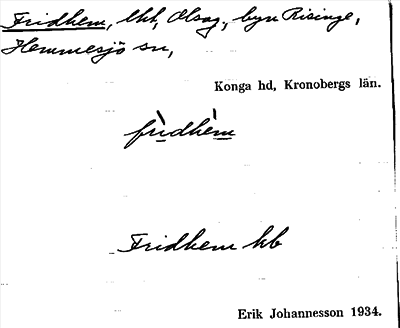 Fridhem, lht, Olsag., byn Risinge,
Hemmesjö sn,
Konga hd, Kronobergs län.
frìdhèm
Fridhem hb
Erik Johannesson 1934.